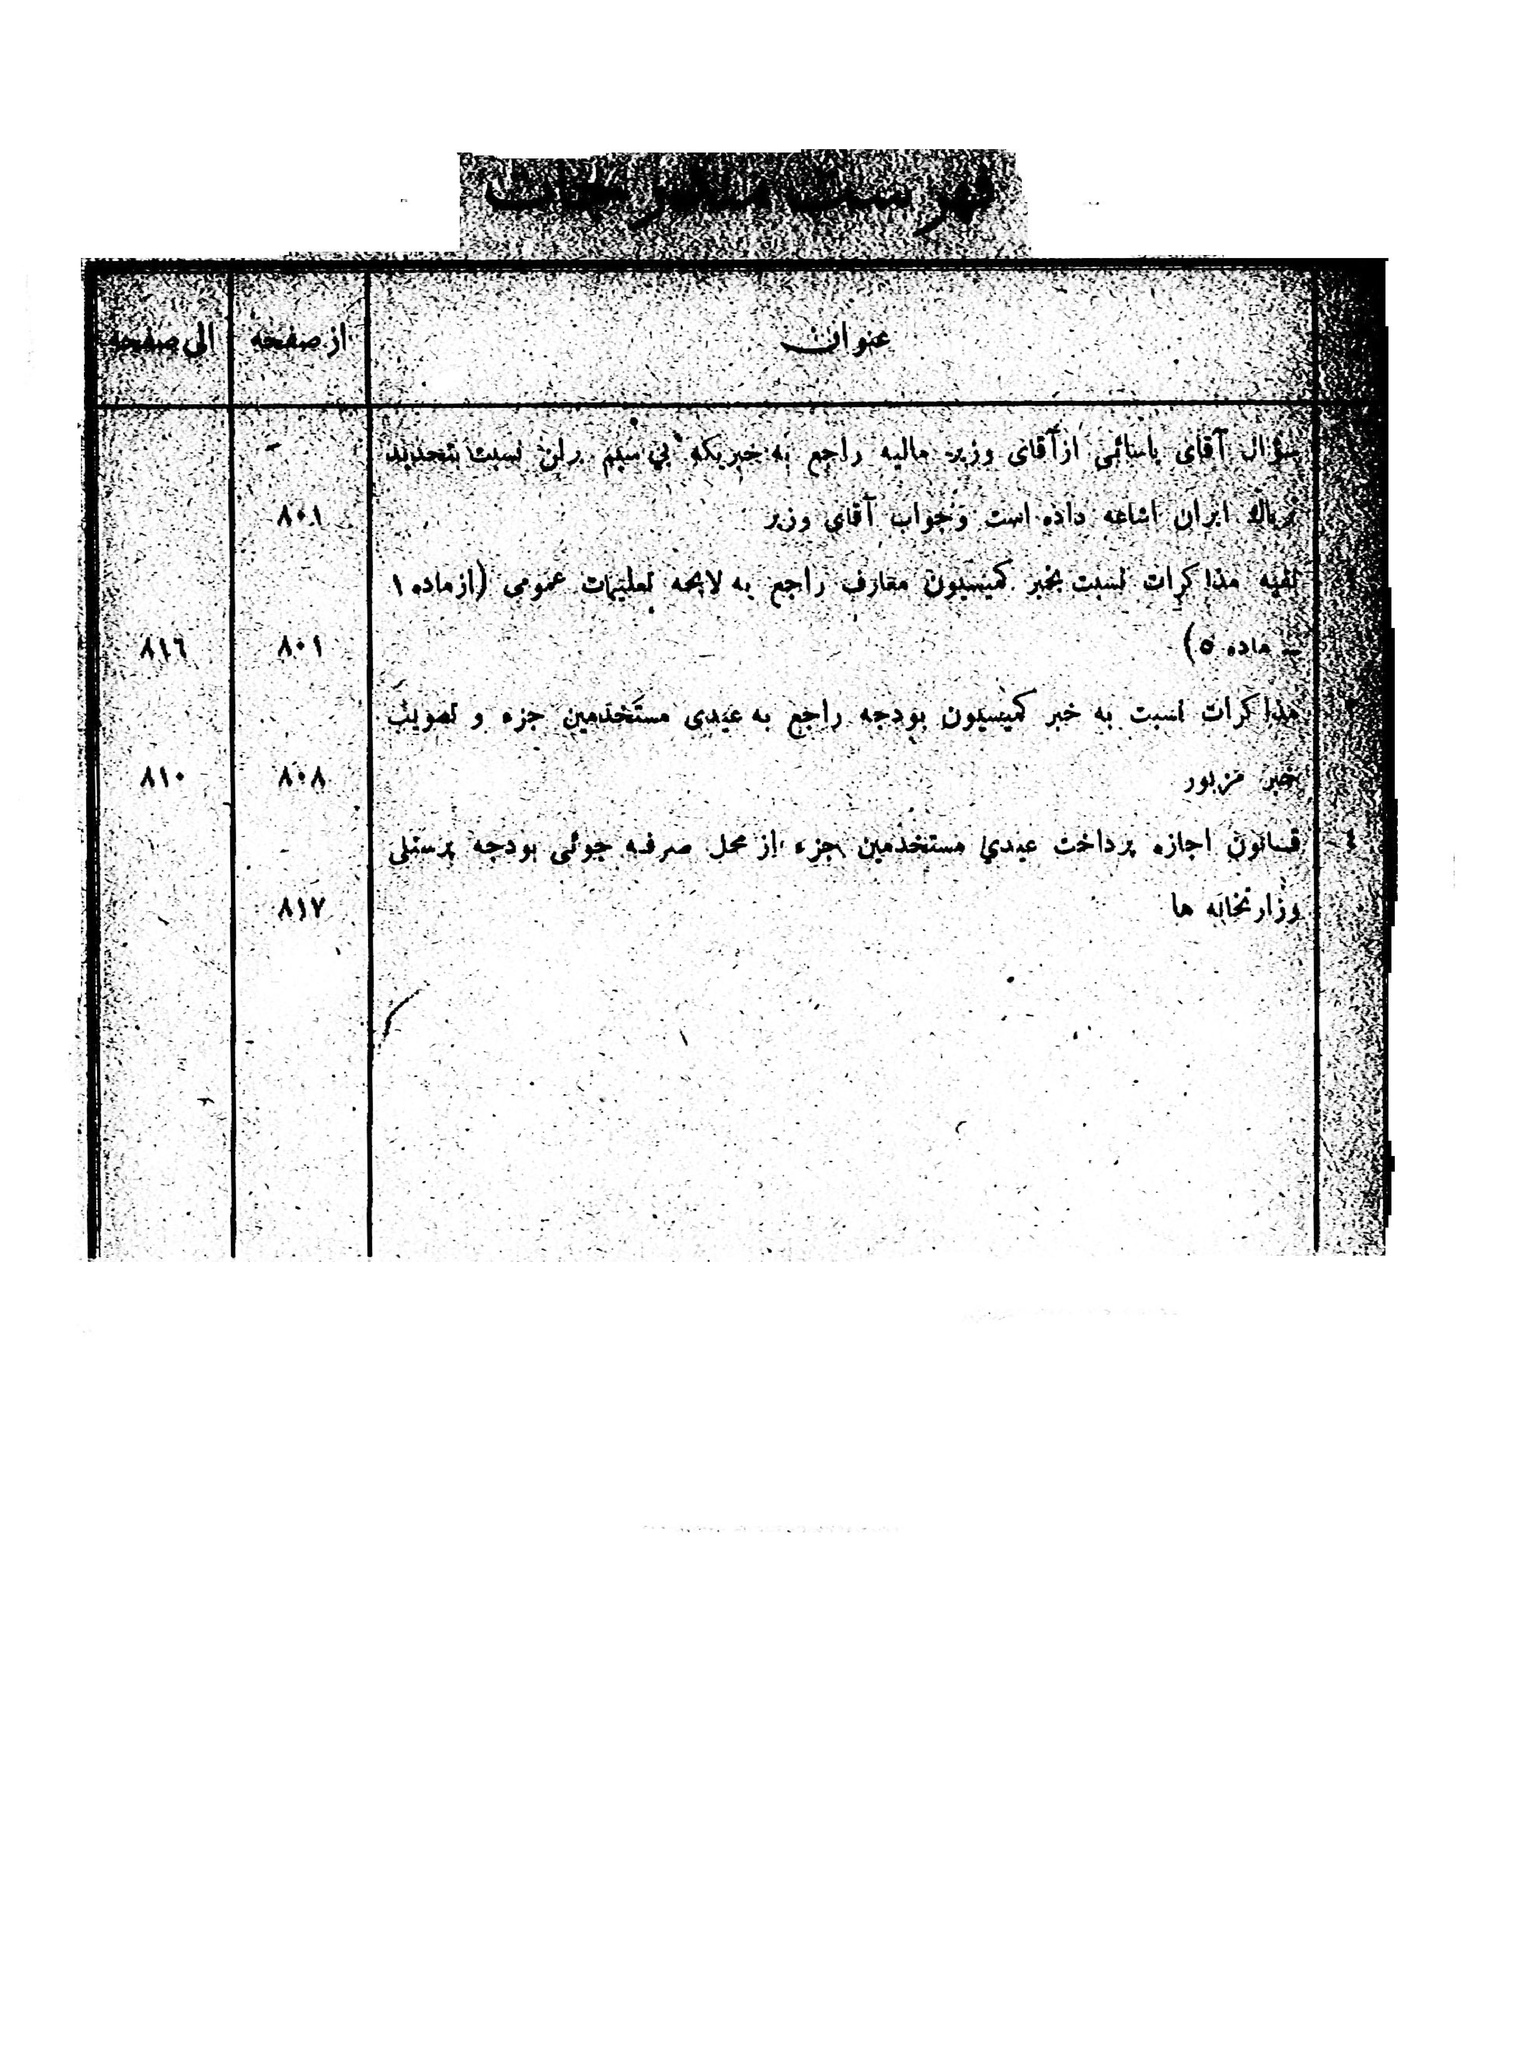 فهرست مندرجات
عنوان از صفحه الی صفحه
سؤال آقای یاسائی از آقای وزیر مالیه راجع به خبریکه بی سیم برلن نسبت بتحدید
تریاك ایران اشاعه داده است و جواب آقای وزیر ٨٠١
بقیه مذاکرات نسبت بخبر کمیسیون معارف راجع به لایحه تعلیمات عمومی (از ماده ١
ماده ٥) ٨٠١ ٨١٦
مذاکرات نسبت به خبر کمیسیون بودجه راجع به عیدی مستخدمین جزء و تصویب
خبر مزبور ٨٠٨ ٨١٠
٤ قانون اجازه پرداخت عیدی مستخدمین جزء از محل صرفه جوئی بودجه پرسنلی
وزارتخانه ها ٨١٧